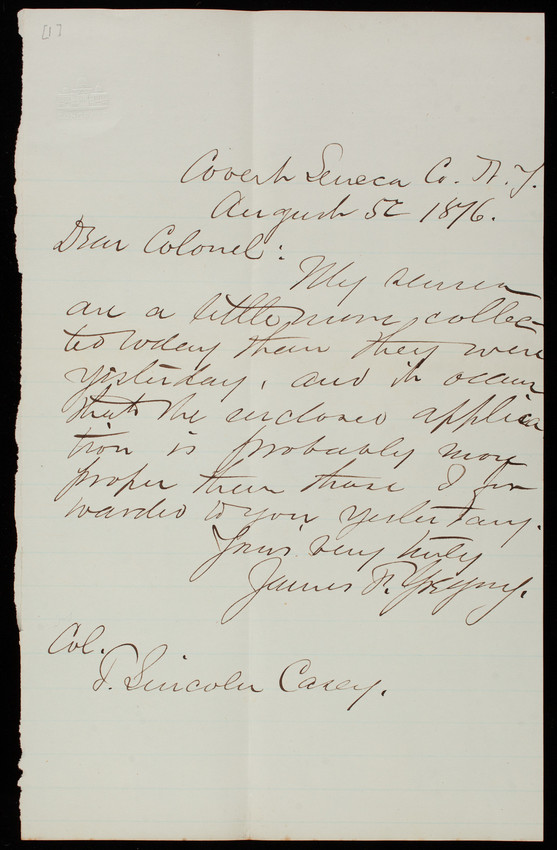 [1]
Covert Seneca Co. N. Y.
August 5t 1876.
Dear Colonel:
My senses
are a little more collec-
ted today than they were
yesterday, and it occurs
that the enclosed applica
tion is probably more
proper than those I for
warded to you yesterday.
Yours very truly
James F. Gregory.
Col.
T. Lincoln Casey.